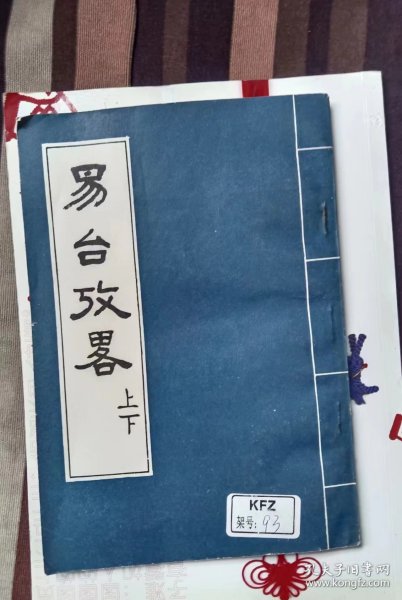 易台攷畧
上下
KFZ
架号: 93
孔夫子旧书网
www.kongfz.com